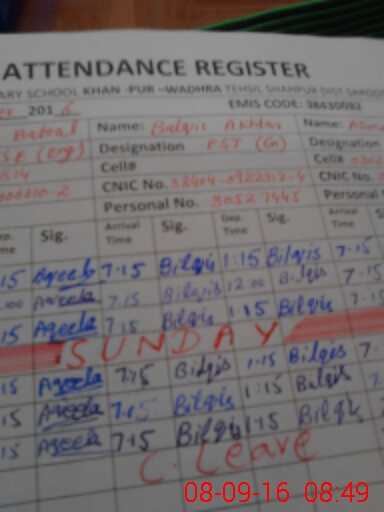 ATTENDANCE REGISTER
ARY SCHOOL KHAN -PUR –WADHRA TEHSIL SHAHPUR DIST SARGOD
2016 EMIS CODE: 38430082
Name: Bilqis Akhtar Name:
SE (Eng) Designation EST (G) Designation
Cell# Cell#
CNIC No. CNIC No.
Personal No. 30527445 Personal
Sig. Arrival Time Sig. Dep. Time Sig. Arrival Time Sig
15 Aqeela 7:15 Bilqis 1:15 Bilqis 7:15
.00 Aqeela 7:15 Bilqis 12:00 Bilqis 7:15
15 Aqeela 7:15 Bilqis 1:15 Bilqis 7:1
SUNDAY
15 Aqeela 7:15 Bilqis 1:15 Bilqis 7
15 Aqeela 7:15 Bilqis 1:15 Bilqis 7
15 Aqeela 7:15 Bilqis 1:15 Bilqis 7
C. Leave
08-09-16 08:49